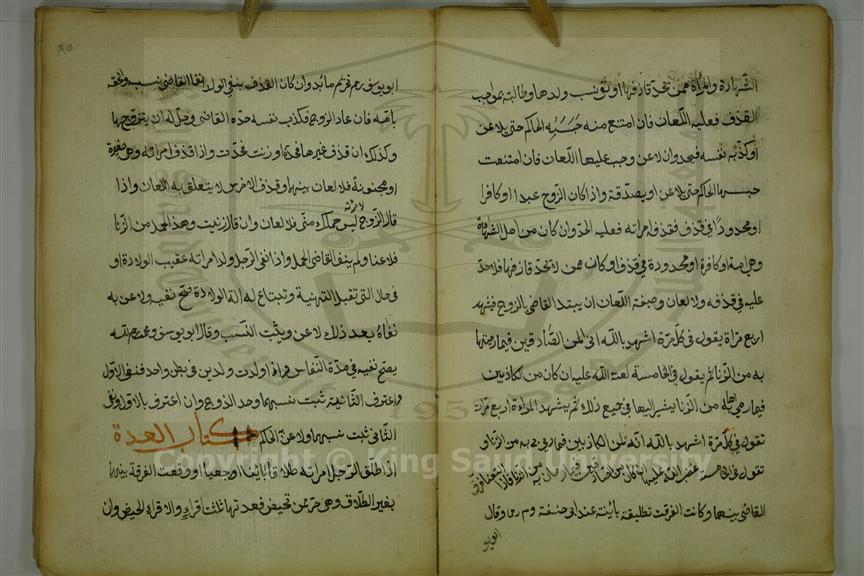 الشهادة والمرأة ممن تحد قاذفها او نفى نسب ولدها وطالبته بموجب
القذف فعليه اللعان فان امتنع منه حبسه الحاكم حتى يلاعن
او يكذب نفسه فيحد وان لاعن وجب عليها اللعان فان امتنعت
حبسها الحاكم حتى تلاعن او يصدقه واذا كان الزوج عبدا او كافرا
او محدودا في قذف فقذف امراته فعليه الحد وان كان من اهل الشهادة
وهي امة او كافرة او محدودة في قذف او كانت ممن لا تحد قاذفها فلا حد
عليه في قذفه ولا لعان وصفة اللعان ان يبتدا القاضي الزوج فيشهد
اربع مراة يقول في كل مرة اشهد بالله انى لمن الصادقين فيما رميتها
به من الزنا ثم يقول في الخامسة لعنة الله عليه ان كان من الكاذبين
فيما رمى به من الزنا يشير اليها في جميع ذلك ثم يشهد المراءة اربع مرات
تقول في كل مرة اشهد بالله انه لمن الكاذبين فيما رمى به من الزنا و
تقول في الخامسة غضب الله عليها ان كان من الصادقين فيما رمانى به من الزنا فاذا التعنا فرق
القاضي بينهما وكانت الفرقت تطليقة بائنة عند ابى حنيفة وم رحما وقال
ابويو
ابو يوسف رحم تحريم مابد وان كان القذف بنفي الولد نفا القاضي نسبه والحقه
بامه فان عاد الزوج فكذب نفسه حده القاضي وحل له ان يتزوجها
وكذلك ان قذف غيرها فحد او زنت فحدت واذا قذف امراته وهي صغيرة
او مجنونة فلا لعان بينهما وقذف الاخرس لا يتعلق به اللعان واذا
قال الزوج لامراته ليس حملك منى فلا لعان وان قال زنيت وهذا الحمل من الزنا
فلاعنا ولم ينف القاضي الحمل واذا نفى الرجل ولد امراته عقيب الولادة او
في حال التي تقبل التهنية وتبتاع له الة الولادة صح نفيه ولاعن به
نفاه بعد ذلك لاعن ويثبت النسب وقال ابو يوسف ومحمد رحمه الله
يصح نفيه في مدة النفاس واذا ولدت ولدين في بطن واحد فنفى الاول
واعترف الثانى يثبت نسبهما وحد الزوج وان اعترف بالاول ونفى
الثانى ثبت نسبهما ولاعن الحكم كتاب العدة
اذا طلق الرجل امراته طلاقا بائنا او رجعيا او وقعت الفرقة بينهما
بغير الطلاق وهى حرة ممن تحيض فعدتها ثلثة اقراء والاقراء الحيض وان
Copyright © King Saud University
1957